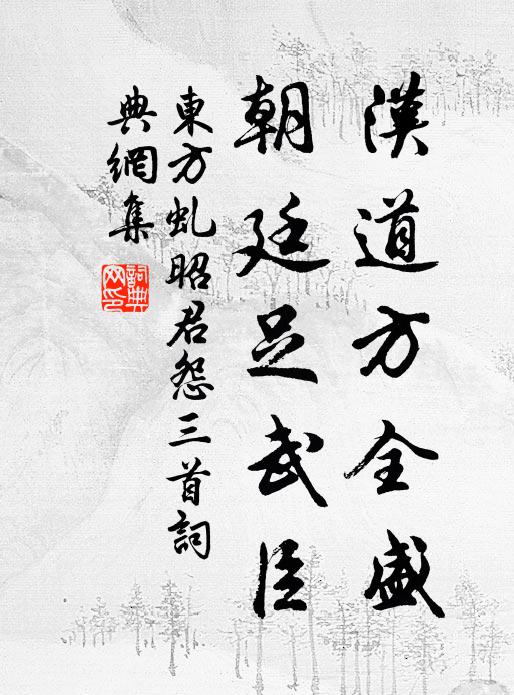 漢道方全盛
朝廷足武臣
東方虬昭君怨三首詞
典網集
詞典網印